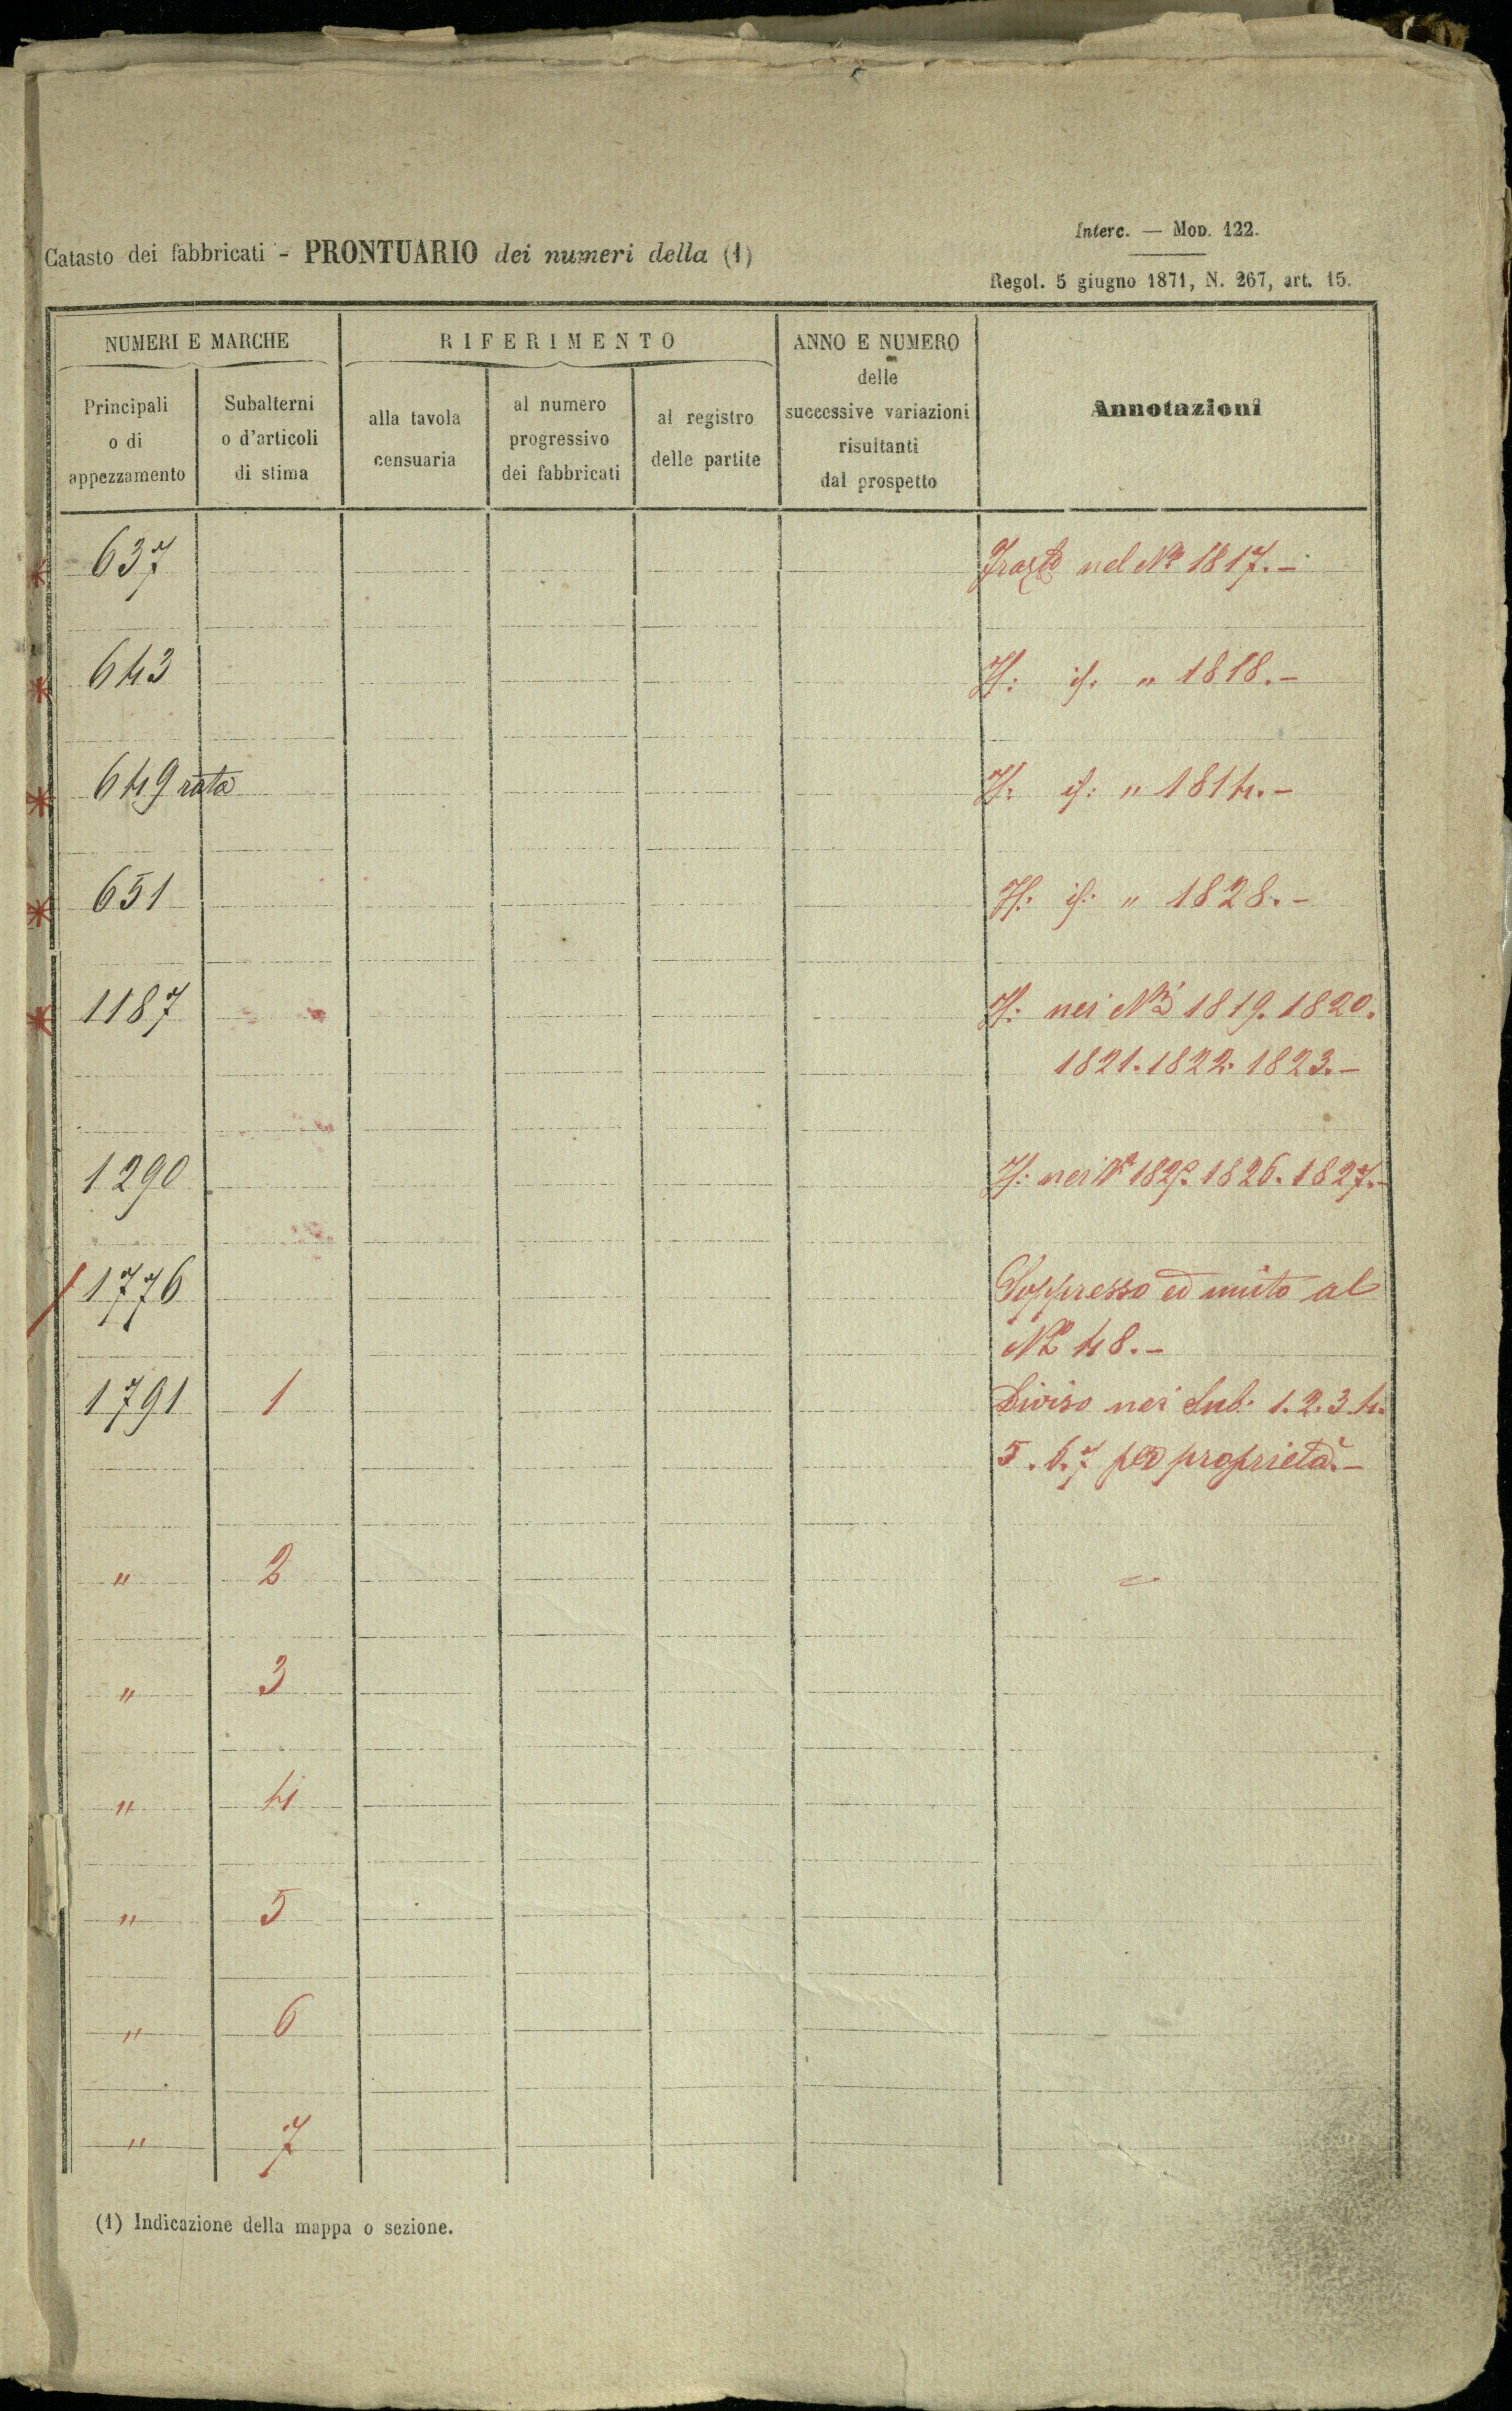 Interc. — Mod. 122.
Catasto dei fabbricati - PRONTUARIO dei numeri della (1)
Regol. 5 giugno 1871, N. 267, art. 15.
NUMERI E MARCHE
RIFERIMENTO
ANNO E NUMERO
delle
successive variazioni
risultanti
dal prospetto
Annotazioni
Principali
o di
appezzamento
Subalterni
o d'articoli
di stima
alla tavola
censuaria
al numero
progressivo
dei fabbricati
al registro
delle partite
* 637 nel No 1817.-
* 643 If: if: " 1818.-
* 649 rata If: if: " 1814.-
* 651 If: if: " 1828.-
* 1187 If: nei Ni 1819. 1820.
1821. 1822. 1823.-
1290 If: nei Ni 1826. 1827.-
/ 1776 Soppresso ed unito al
No 48.-
1791 1 Diviso nei Sub: 1. 2. 3. 4.
5. 6. 7 per proprietà.-
" 2
" 3
" 4
" 5
" 6
" 7
(1) Indicazione della mappa o sezione.